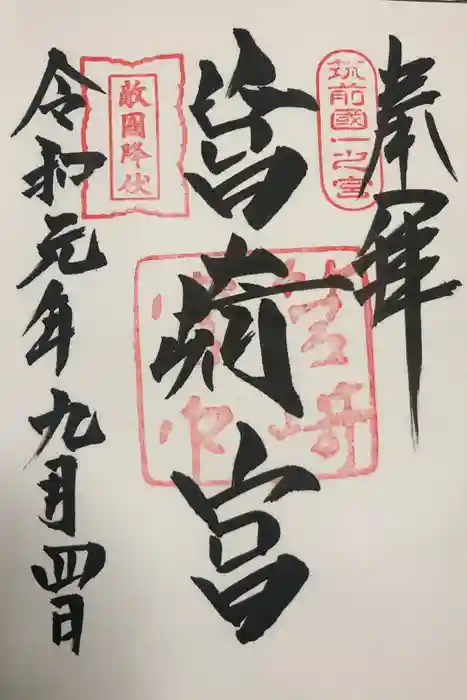 奉拝
筑前國一之宮
筥崎宮
筥崎
宮印
敵國降伏
令和元年九月四日